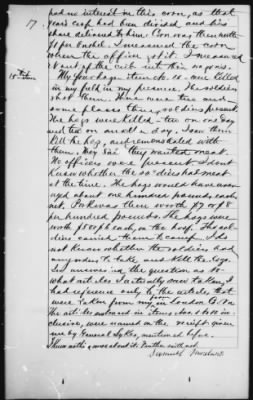 had no interest in this corn, as that
17. years crop had been divided and his
share delivered to him. Corn was then worth
$1 per bushel. I measured the corn
when the officer got it. I measured
it out of the crib into the wagons.
15th Item My four hogs item No 15. were killed
in my field in my presence. The soldiers
shot them. There were two and
some places three, soldiers present.
The hogs were killed two on one day
and two on another day. I saw them
kill the hogs, and remonstrated with
them. They said they wanted meat.
No officers were present. I don't
know whether the soldiers had meat
at the time. The hogs would have aver-
aged about one hundred pounds, each,
net. Pork was then worth $7 or $8
per hundred pounds. The hogs were
worth $5 or $6 each, on the hoof. The sol-
diers carried them to camp. I do
not know whether the soldiers had
any orders to take and kill the hogs.
In answering the question as to
what articles I actually saw taken, I
had reference only to the articles that
were taken from my farm in Loudon Co. Va.
The articles embraced in items Nos 1 to 10 in-
clusive, were named on the receipt given
me by General Sykes, mentioned before.
I know nothing more about it. Further saith not.
Samuel